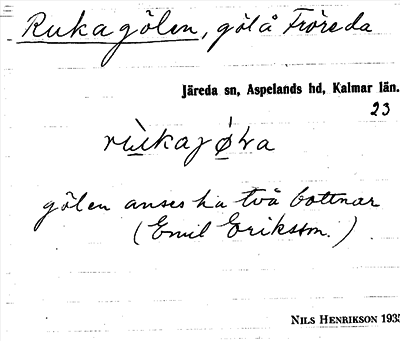 Rukagölen, göl å Fröreda
Järeda sn, Aspelands hd, Kalmar län.
23
gölen anses ha två bottnar
(Emil Eriksson.)
NILS HENRIKSON 1935